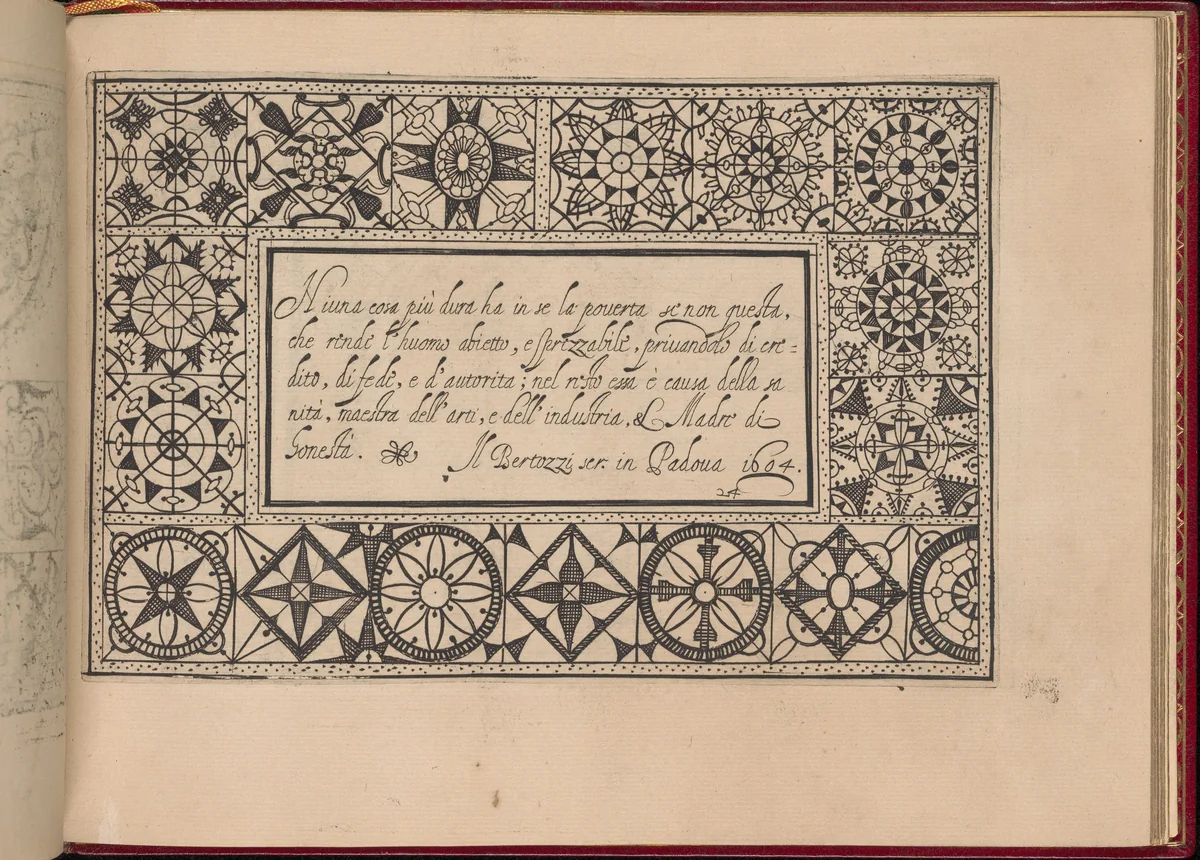 Niuna cosa più dura ha in se la pouerta se non questa,
che rende l'huomo abietto, e sprezzabile, priuandolo di cre=
dito, di fede, e d'autorita; nel resto essa è causa della sa
nita, maestra dell'arti, e dell'industria, & Madre di
honestà.
Il Bertozzi scr: in Padoua 1604.
24